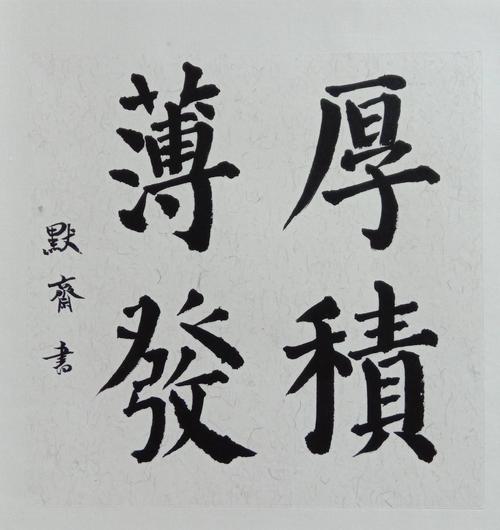 厚積
薄發
默齋書